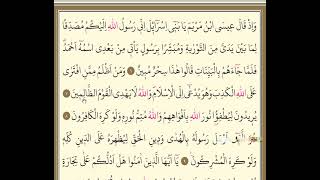 وَاِذْ قَالَ عٖيسَى ابْنُ مَرْيَمَ يَا بَنٖٓى اِسْرَٓائٖلَ اِنّٖى رَسُولُ اللّٰهِ اِلَيْكُمْ مُصَدِّقًا
لِمَا بَيْنَ يَدَىَّ مِنَ التَّوْرٰيةِ وَمُبَشِّرًا بِرَسُولٍ يَاْتٖى مِنْ بَعْدِى اسْمُهُٓ اَحْمَدُ
فَلَمَّا جَٓاءَهُمْ بِالْبَيِّنَاتِ قَالُوا هٰذَا سِحْرٌ مُبٖينٌ وَمَنْ اَظْلَمُ مِمَّنِ افْتَرٰى
عَلَى اللّٰهِ الْكَذِبَ وَهُوَ يُدْعٰٓى اِلَى الْاِسْلَامِ وَاللّٰهُ لَا يَهْدِى الْقَوْمَ الظَّالِمٖينَ
يُرٖيدُونَ لِيُطْفِؤُ۫ا نُورَ اللّٰهِ بِاَفْوَاهِهِمْ وَاللّٰهُ مُتِمُّ نُورِهٖ وَلَوْ كَرِهَ الْكَافِرُونَ
هُوَ الَّذٖٓى اَرْسَلَ رَسُولَهُ بِالْهُدٰى وَدٖينِ الْحَقِّ لِيُظْهِرَهُ عَلَى الدّٖينِ كُلِّهٖ
وَلَوْ كَرِهَ الْمُشْرِكُونَ يَٓا اَيُّهَا الَّذٖينَ اٰمَنُوا هَلْ اَدُلُّكُمْ عَلٰى تِجَارَةٍ